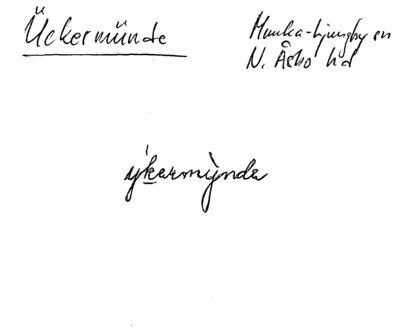 Ückermünde
Munka-Ljungby sn
N. Åsbo hd
ýkermỳnde